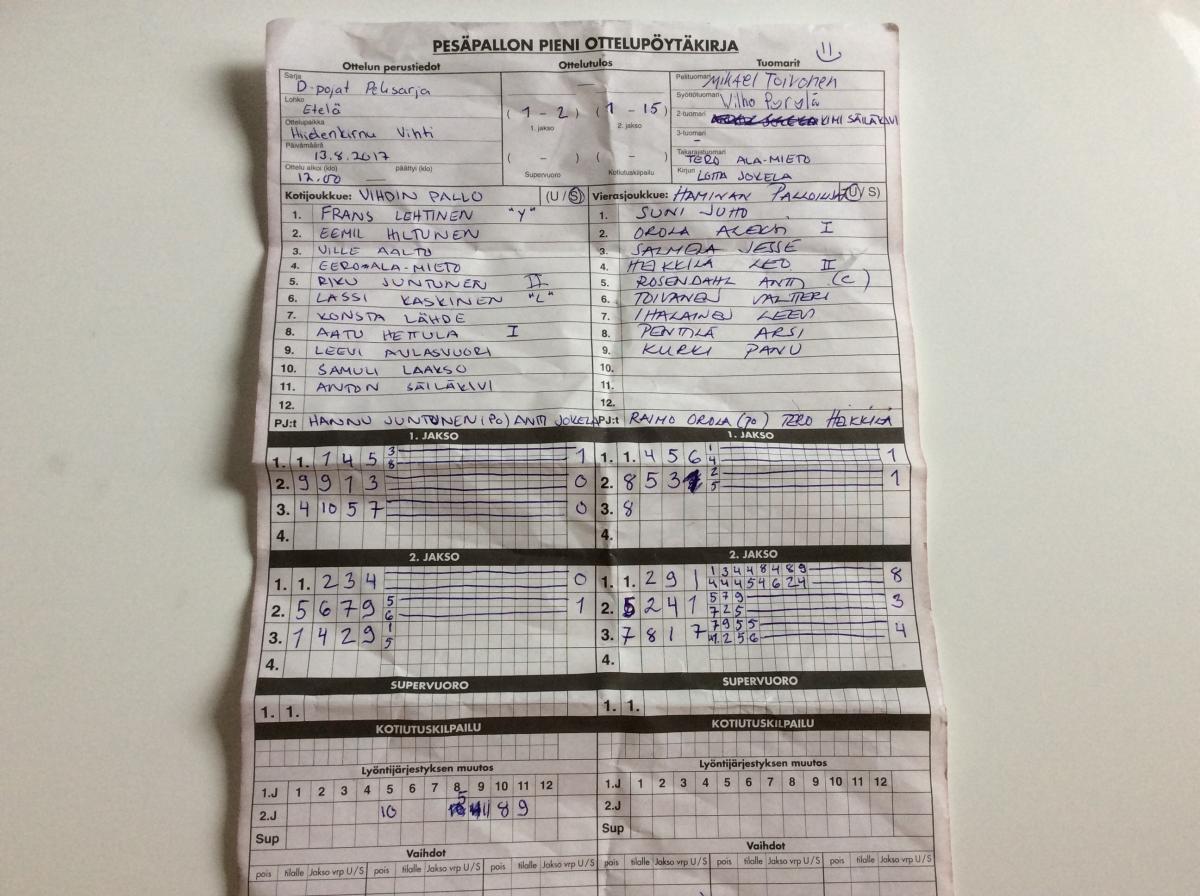 PESÄPALLON PIENI OTTELUPÖYTÄKIRJA
Ottelun perustiedot Ottelutulos Tuomarit
Sarja D-pojat Pelisarja
Lohko Etelä
Ottelupaikka Hiidenkirnu Vihti
Päivämäärä 13.8.2017
Ottelu alkoi (klo) 12.00 päättyi (klo) —
( 1 - 2 ) ( 1 - 15 )
1. jakso 2. jakso
( - ) ( - )
Supervuoro Kotiutuskilpailu
Pelituomari Mikael Toivonen
Syöttötuomari Vilho Pyrylä
2-tuomari KIMI SÄILÄKIVI
3-tuomari -
Takarajatuomari TERO ALA-MIETO
Kirjuri LOTTA JOKELA
Kotijoukkue: VIHDIN PALLO (U / S)
1. FRANS LEHTINEN "Y"
2. EEMIL HILTUNEN
3. VILLE AALTO
4. EERO ALA-MIETO
5. RIKU JUNTUNEN II
6. LASSI KASKINEN "L"
7. KONSTA LÄHDE
8. AATU HETTULA I
9. LEEVI AULASVUORI
10. SAMULI LAAKSO
11. ANTON SÄILÄKIVI
12.
PJ:t HANNU JUNTUNEN (PO) ANTTI JOKELA
Vierasjoukkue: HAMINAN PALLOILIJAT (U / S)
1. SUNI JUHO
2. OROLA ALEKSI I
3. SALMELA JESSE
4. HEIKKILÄ LEO II
5. ROSENDAHL ANTTI (C)
6. TOIVANEN VALTTERI
7. IHALAINEN LEEVI
8. PENTTILÄ ARSI
9. KURKI PANU
10.
11.
12.
PJ:t RAIMO OROLA (PO) TERO HEIKKILÄ
1. JAKSO
1. 1. 1 4 5 3 8 1
2. 9 9 1 3 0
3. 4 10 5 7 0
4.
1. JAKSO
1. 1. 4 5 6 1 4 1
2. 8 5 3 2 5 1
3. 8
4.
2. JAKSO
1. 1. 2 3 4 0
2. 5 6 7 9 5 6 1
3. 1 4 2 9 1 5
4.
2. JAKSO
1. 1. 2 9 1 1 3 4 4 8 4 8 9 8
4 4 4 5 4 6 2 4
2. 5 2 4 1 5 7 9 3
7 2 5
3. 7 8 1 7 7 9 5 5 4
1 2 5 6
4.
SUPERVUORO
1. 1.
SUPERVUORO
1. 1.
KOTIUTUSKILPAILU
KOTIUTUSKILPAILU
Lyöntijärjestyksen muutos
1.J 1 2 3 4 5 6 7 8 9 10 11 12
2.J 10 5 11 8 9
Sup
Vaihdot
pois tilalle Jakso vrp U/S pois tilalle Jakso vrp U/S
Lyöntijärjestyksen muutos
1.J 1 2 3 4 5 6 7 8 9 10 11 12
2.J
Sup
Vaihdot
pois tilalle Jakso vrp U/S pois tilalle Jakso vrp U/S